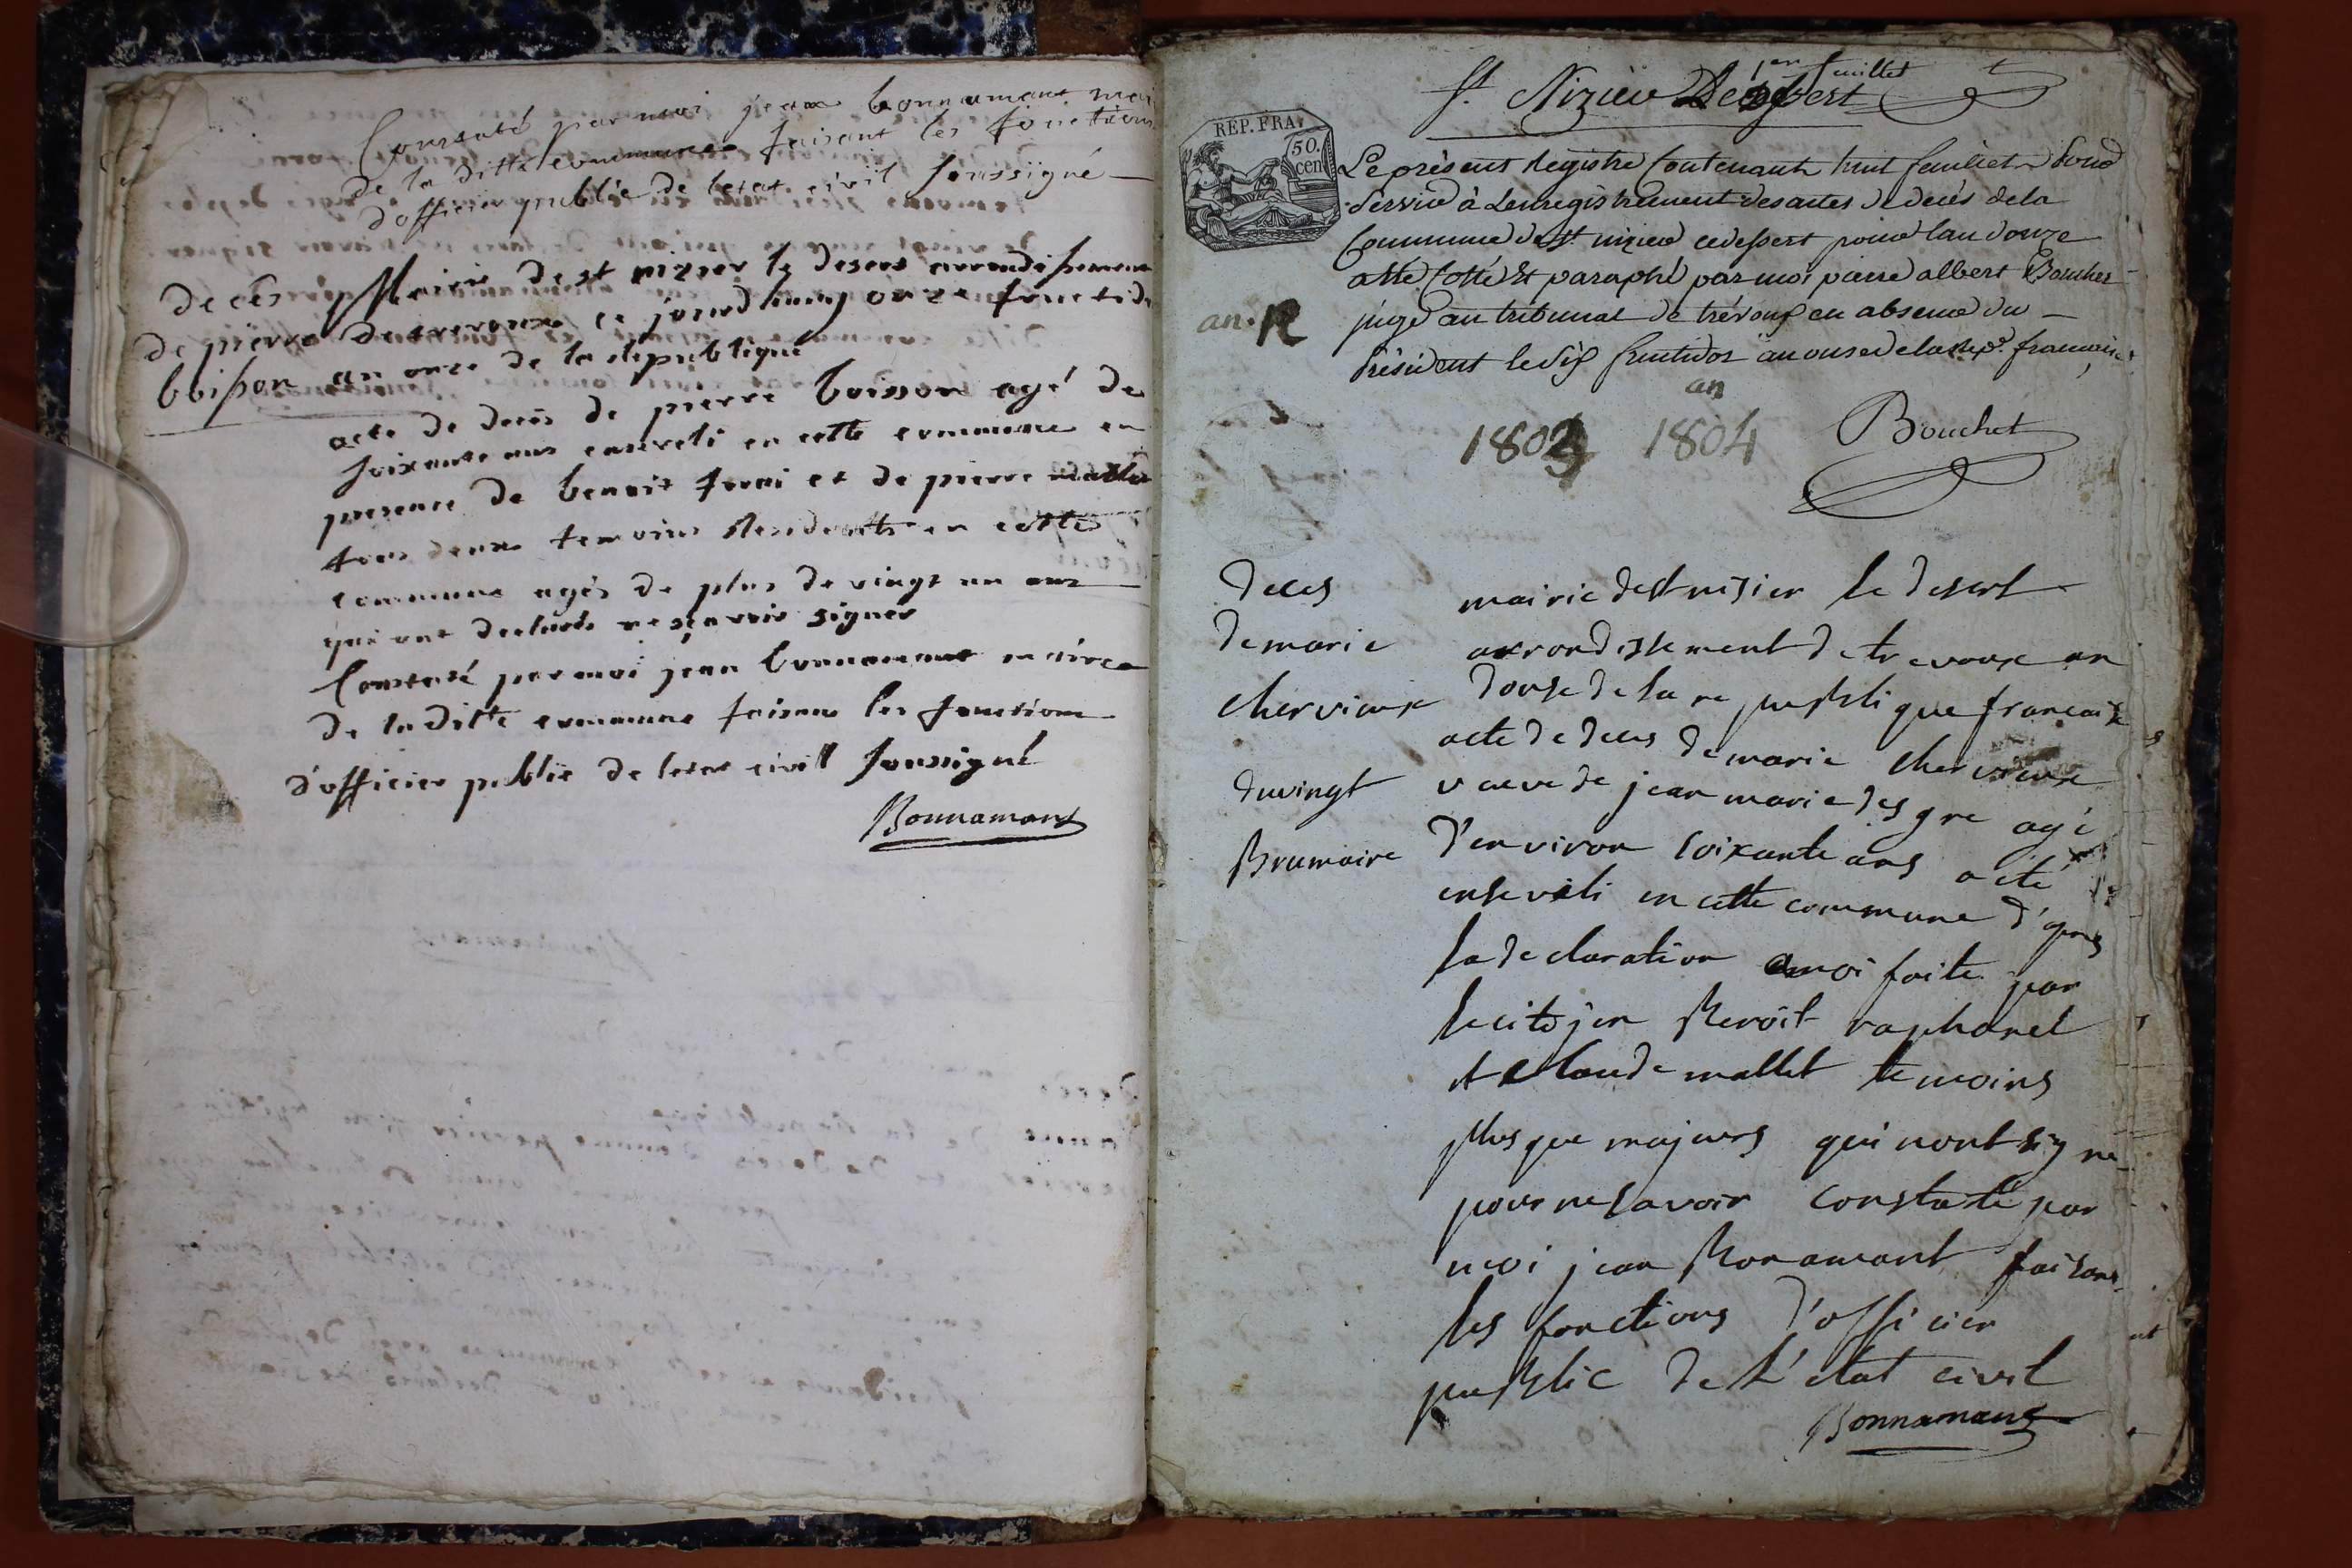 Constaté par moi jean bonnamant mai
de la ditte commune faisant les fonctions
d'officier publie de letat civil soussigné
deces
de pierre
boisson
Mairie de st nizier le desers arrondissement
de trevoux ce jourdhuuy onze fructid
an onze de la republique
acte de deces de pierre boisson agé de
soixante ans enseveli en cette commune en
presence de benoit et de pierre
tous deux temoins Residents en cette
commune agés de plus de vingt un ans
qui ont declarés ne sçavoir signer
Constaté par moi jean bonnamant maire
de la ditte commune faisant les fonctions
d'officier publie de letat civil soussigné
Bonnamant
1er feuillet
St Nizier Le Désert
REP. FRA.
50.
cen
Le présent Registre contenant huit feuillets Pour
Servir à Lenregistrement des actes de decés de la
Commune de St nizier ledessert pour lan douze
a été Cotté et paraphé par moi pierre albert Bouchet
juge au tribunal de trévoux en absence du
Président le dix fructidor an onze de la Rep. francaise
an. 12
an
1803 1804
Bouchet
deces
de marie
chervieux
du vingt
Brumaire
mairie de st nisier le desert
arrondissement de trevoux an
douse de la republique francaise
acte de deces de marie chervieux
veuve de jean marie desgre agé
d'environ soixante ans a été
enseveli en cette commune d'apres
la declaration a moi faite par
le citojen Benoit raphanel
et claude mallet temoins
plus que majeurs qui nont signé
pour ne savoir constaté par
moi jean Bonamant faisant
les fonctions d'officier
public de l'état civil
Bonnamant